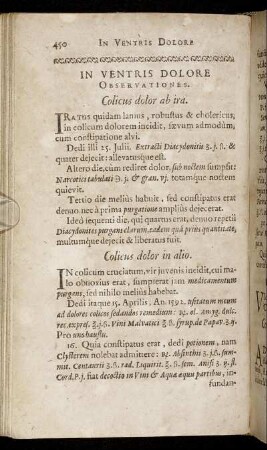 450 IN VENTRIS DOLORE
IN VENTRIS DOLORE
OBSERVATIONES.
Colicus dolor ab ira.
IRATUS quidam lanius, robustus & cholericus,
in colicum dolorem incidit, sævum admodùm,
cum constipatione alvi.
Dedi illi 25. Julii. Extracti Diacydonitis ʒ. ß. &
quater dejecit: allevatusque est.
Altero die, cum rediret dolor, sub noctem sumpsit:
Narcotici tabulati Ʒ. j. & gran. vj. totamque noctem
quievit.
Tertio die meliùs habuit, sed constipatus erat
denuo: nec à prima purgatione ampliùs dejecerat.
Ideò sequenti die, quî quartus erat, denuo repetii
Diacydonites purgans clarum, eadem quâ priùs quantitate,
multumque dejecit & liberatus fuit.
Colicus dolor in alio.
IN colicum cruciatum, vir juvenis incidit, cui ma-
lo obnoxius erat, sumpserat jam medicamentum
purgans, sed nihilo meliùs habebat.
Dedi itaque 15. Aprilis, An. 1592. usitatum meum
ad dolores colicos sedandos remedium: ℞. ol. Amyg. dulc.
rec. expres. ℥. j. ß. Vini Malvatici ℥. ß. syrup. de Papav. ʒ. ij.
Pro uno haustu.
16. Quia constipatus erat, dedi potionem, nam
Clysterem nolebat admittere: ℞. Absinthii ʒ. j. ß. sum-
mit. Centaurii ʒ. ß. rad. Liquirit. ʒ. ß. sem. Anisi ʒ. ij. fl.
Cord. P. j. fiat decoctio in Vino & Aqua æquis partibus, in-
fundan-